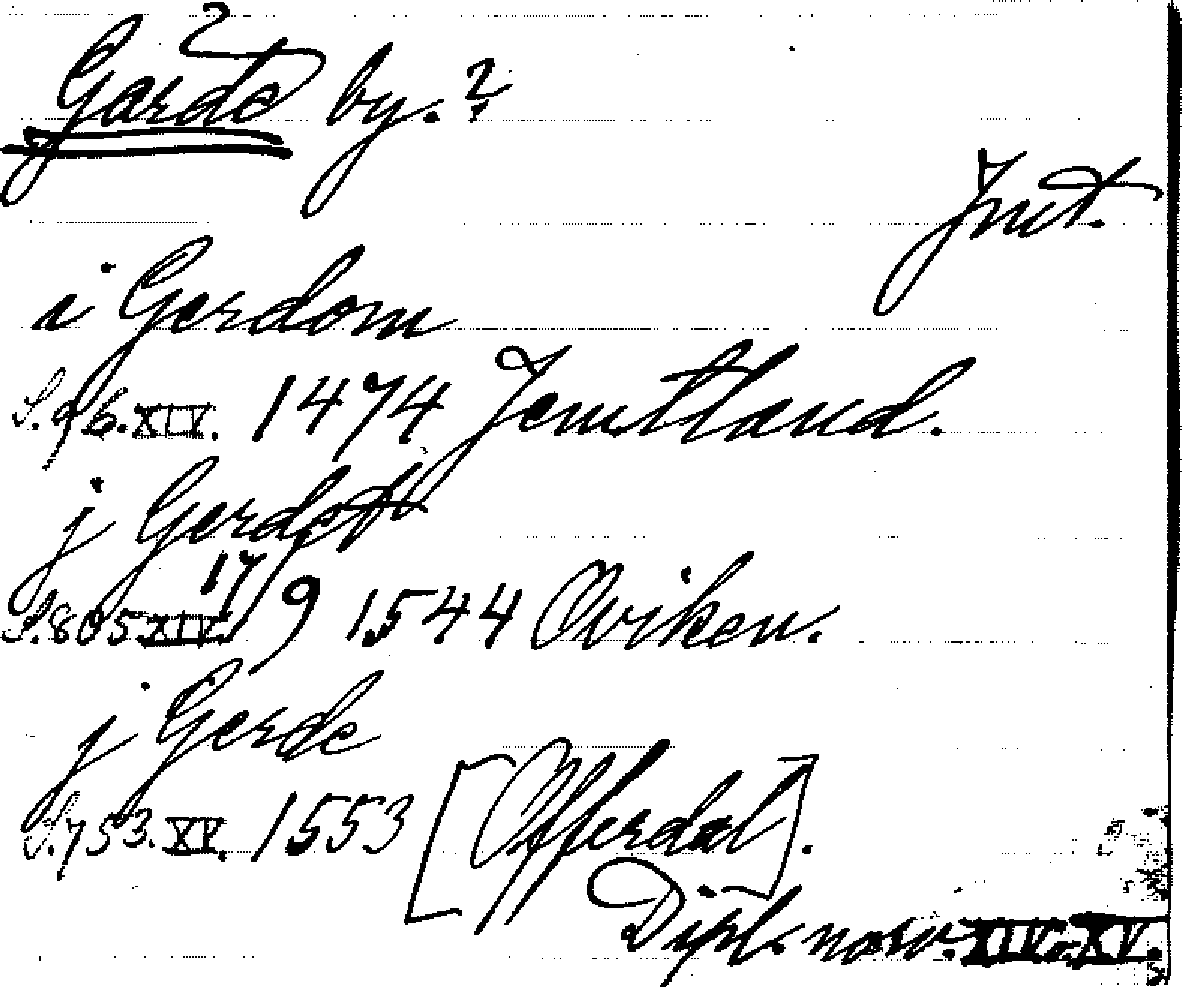 ?
Garde by. ?
Jmt.
i Gerdom
S. 96. XIV. 1474 Jemtland.
j Gerdet
S. 805 XIV. 17/9 1544 Oviken.
j Gerde
S. 753. XV. 1553 [Offerdal].
Dipl. norv. XIV o. XV.